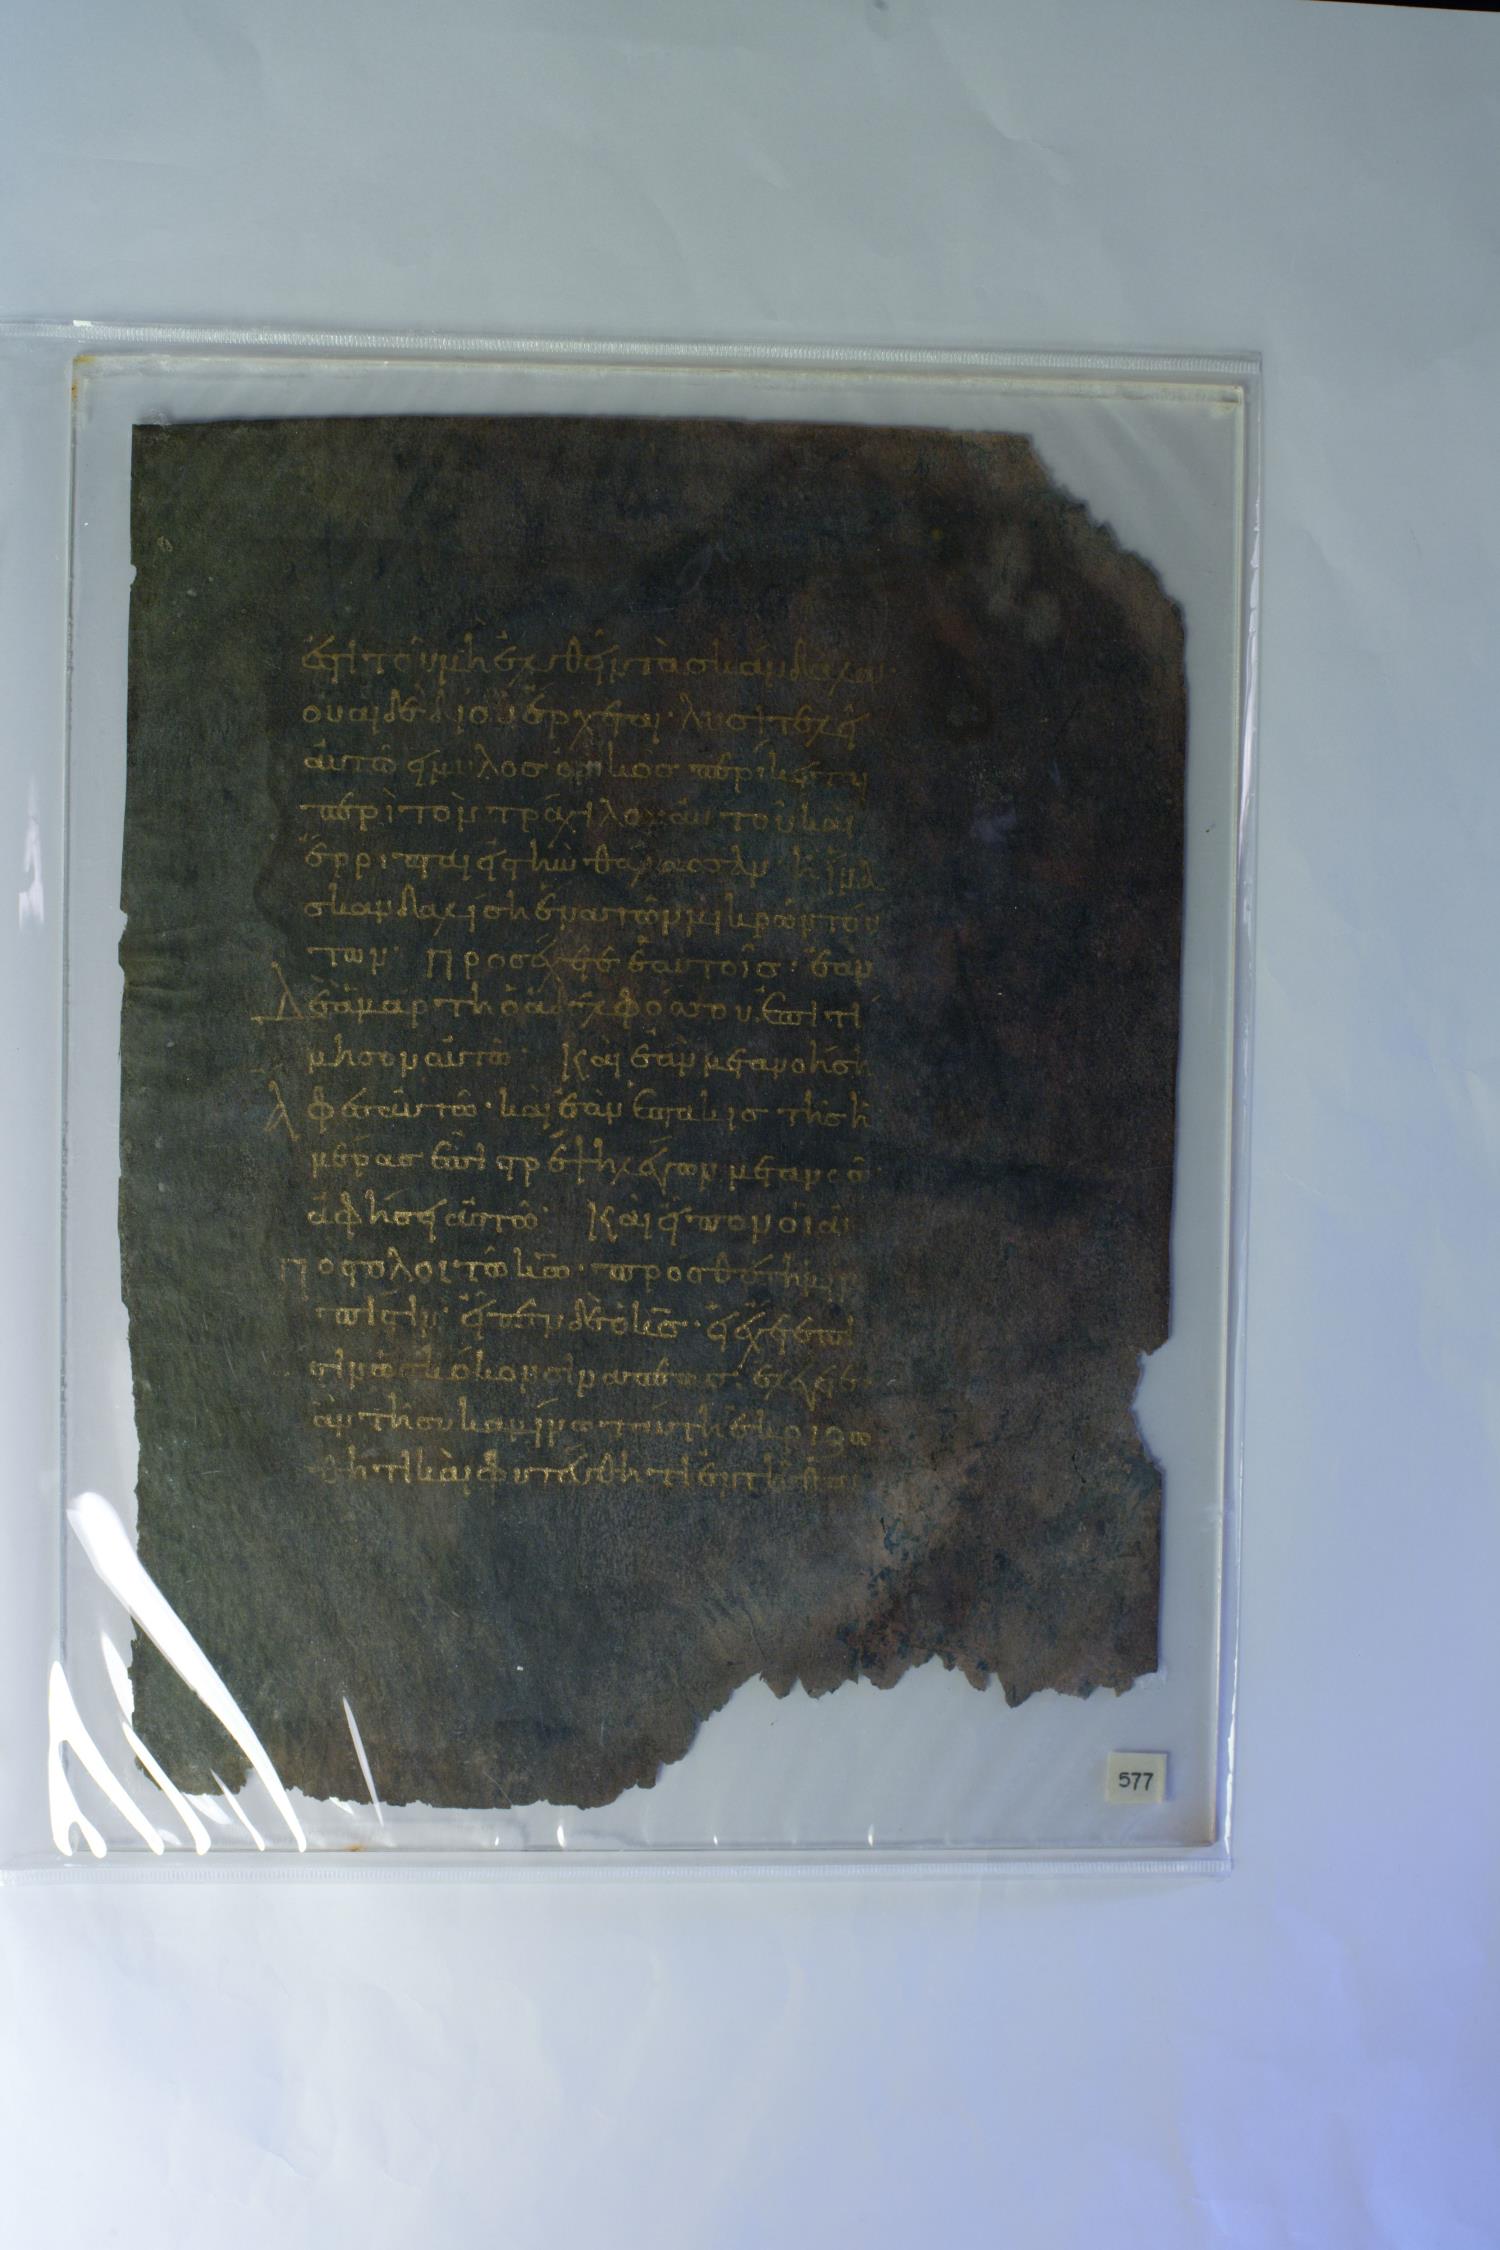 ἐστι τοῦ μὴ ἐλθεῖν τὰ σκάνδαλα·
οὐαὶ δὲ δι οὗ ἔρχεται· λυσιτελεῖ
αὐτῶ εἰ μύλος ὀνικὸς περίκειται
περὶ τὸν τράχιλον αὐτοῦ καὶ
ἔρριπται εἰς τὴν θάλασσαν· ἢ ἵνα
σκανδαλίση ἕνα τῶν μικρῶν τού
των· Προσέχετε ἑαυτοῖς· ἐὰν
δὲ ἁμάρτη ὁ ἀδελφός σου, ἐπιτί
μησον αὐτῶ· Καὶ ἐὰν μετανοήση
ἄφες αὐτῶ· καὶ ἐὰν ἑπτάκις τῆς ἡ
μέρας ἐπιστρέψη λέγων μετανοῶ·
ἀφήσεις αὐτῶ· Καὶ εἶπον οἱ ἀ
πόστολοι τῶ κῶ· πρόσθες ἡμῖν
πίστιν· εἶπεν δὲ ὁ κς· εἰ ἔχετε πί
στιν ὡς κόκον σινάπεως· ἐλέγετε
ἂν τῆ συκαμίνω ταύτη ἐκριζώ
θητι καὶ φυτεύθητι ἐν τῆ θαλ
577